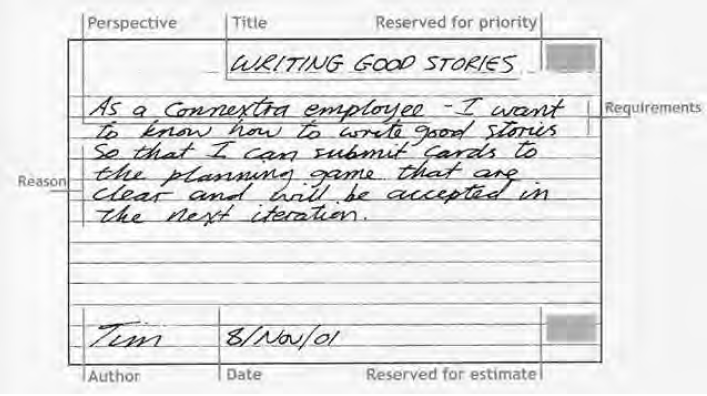 Perspective Title Reserved for priority
WRITING GOOD STORIES
As a Connextra employee - I want
Requirements
to know how to write good stories
So that I can submit cards to
the planning game that are
Reason
clear and will be accepted in
the next iteration.
Tim 8/Nov/01
Author Date Reserved for estimate